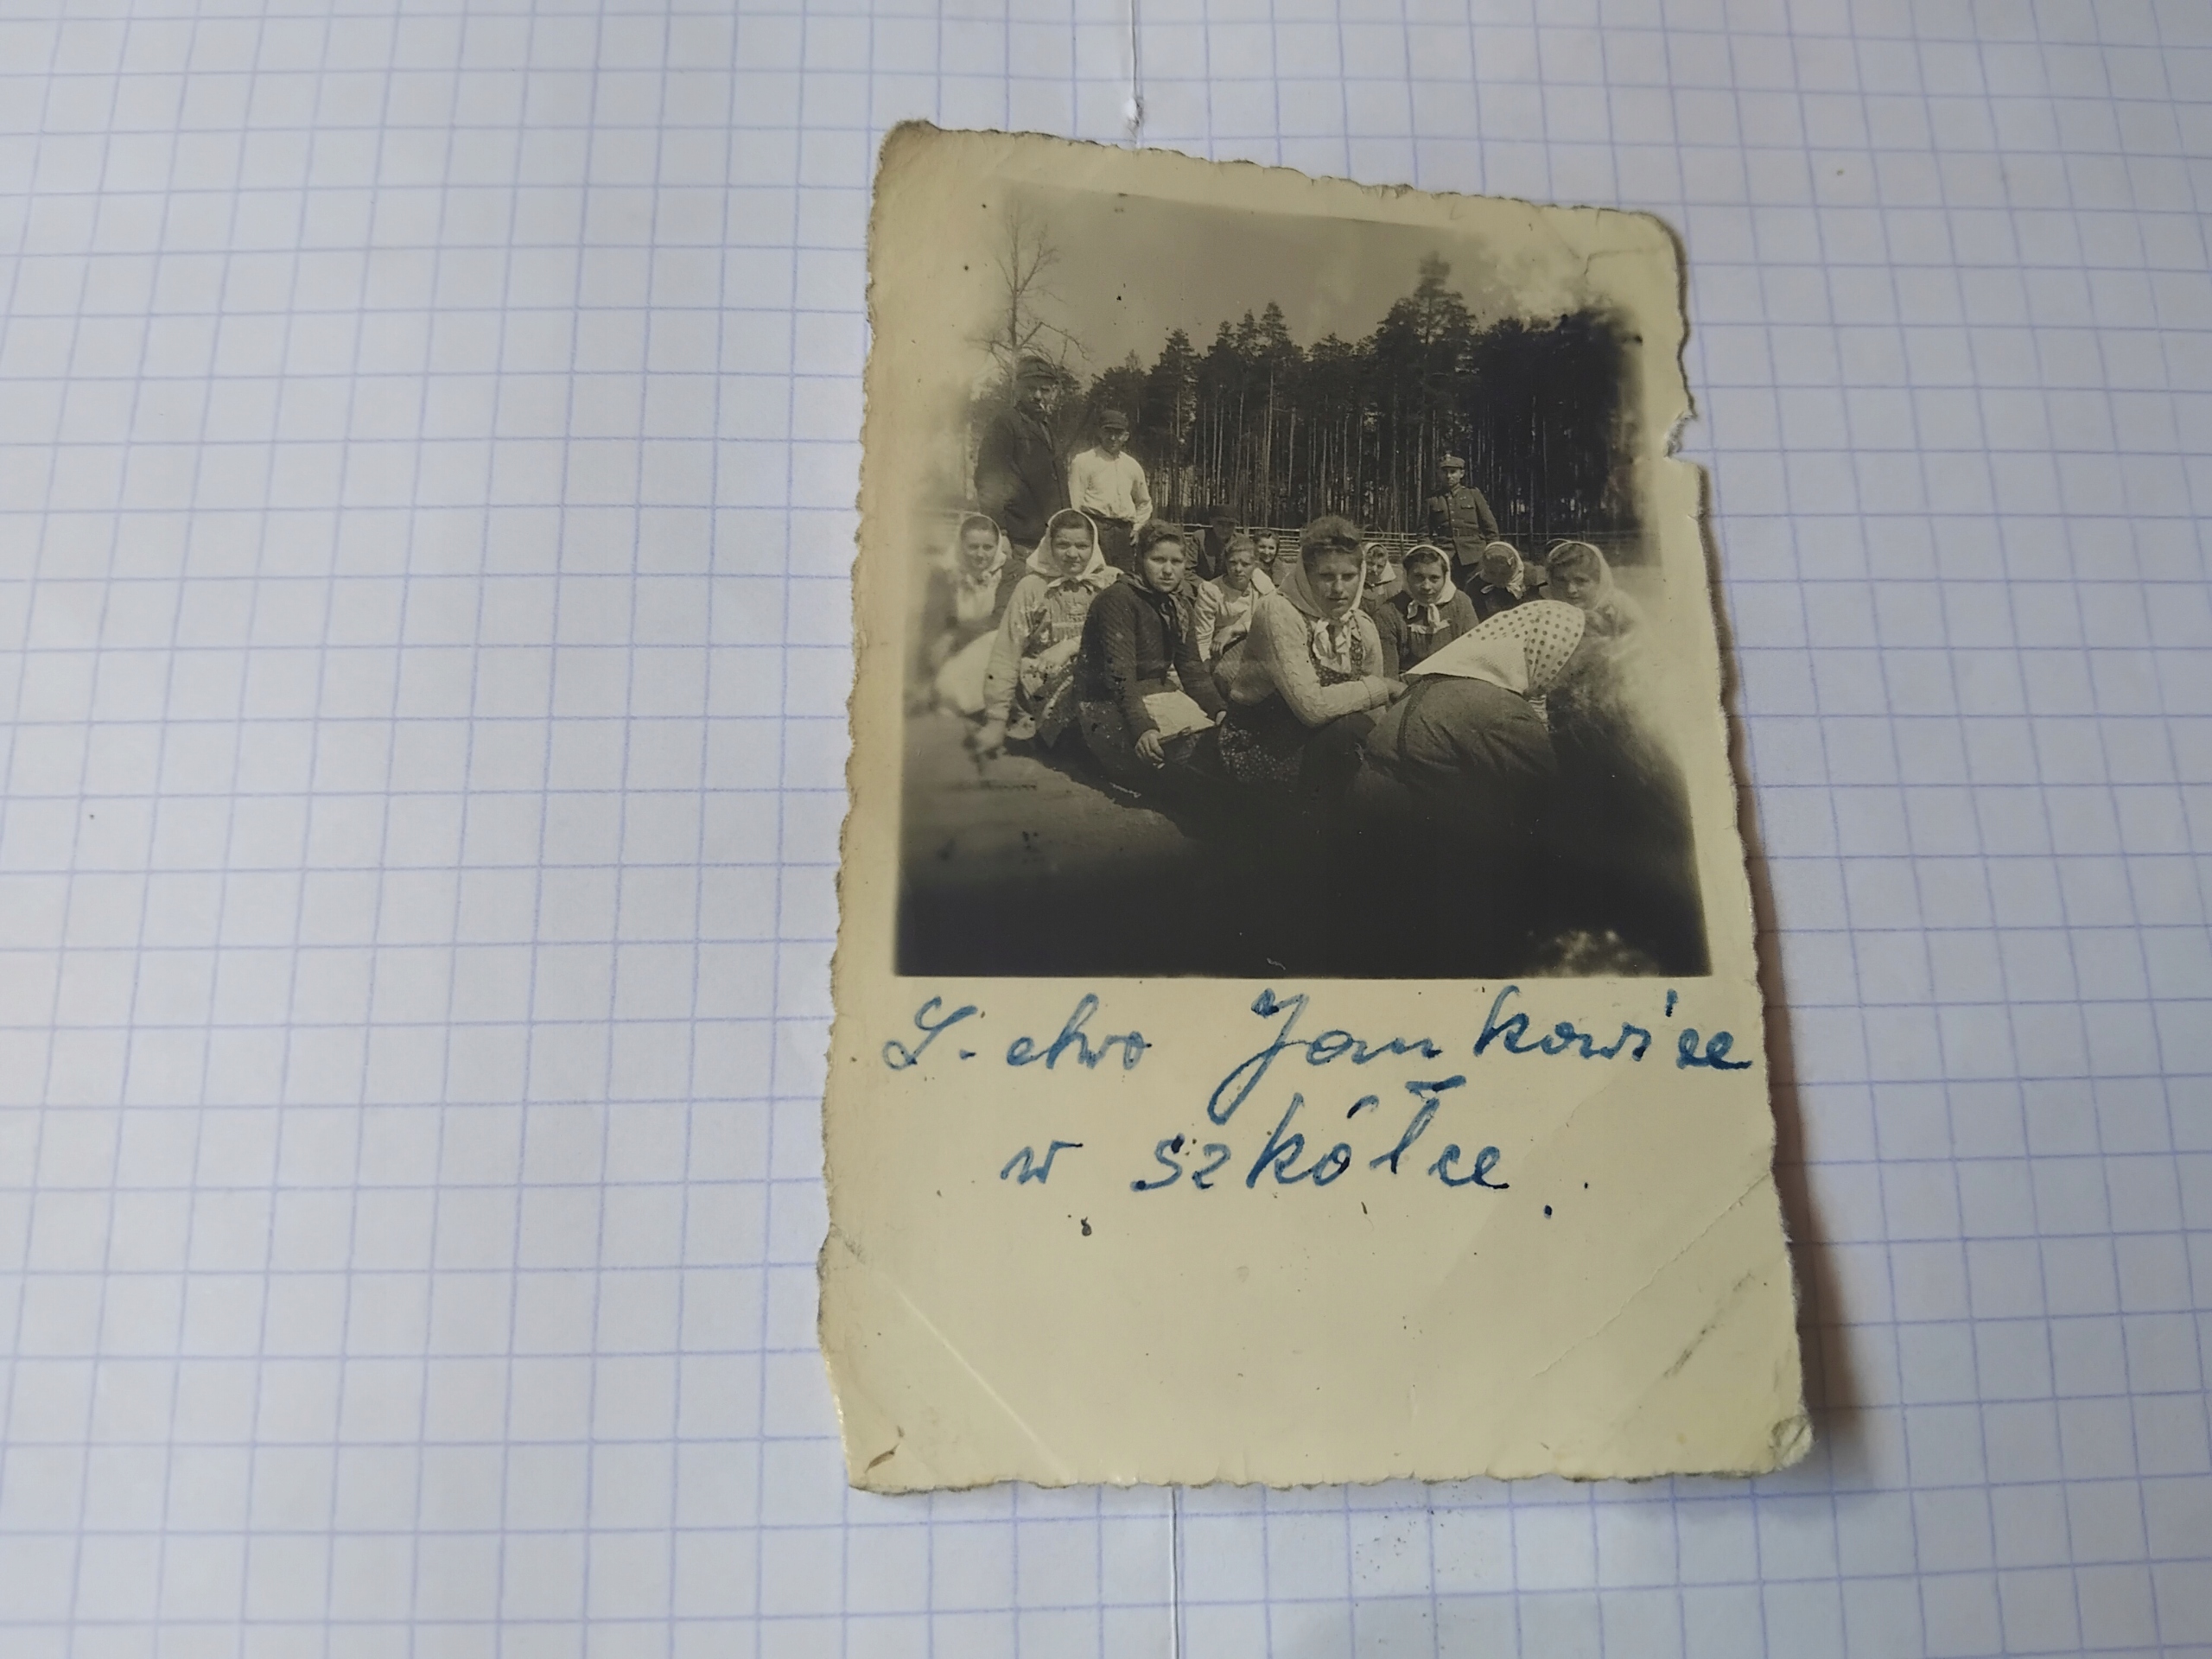 L-ctwo Jankowice
w szkółce.